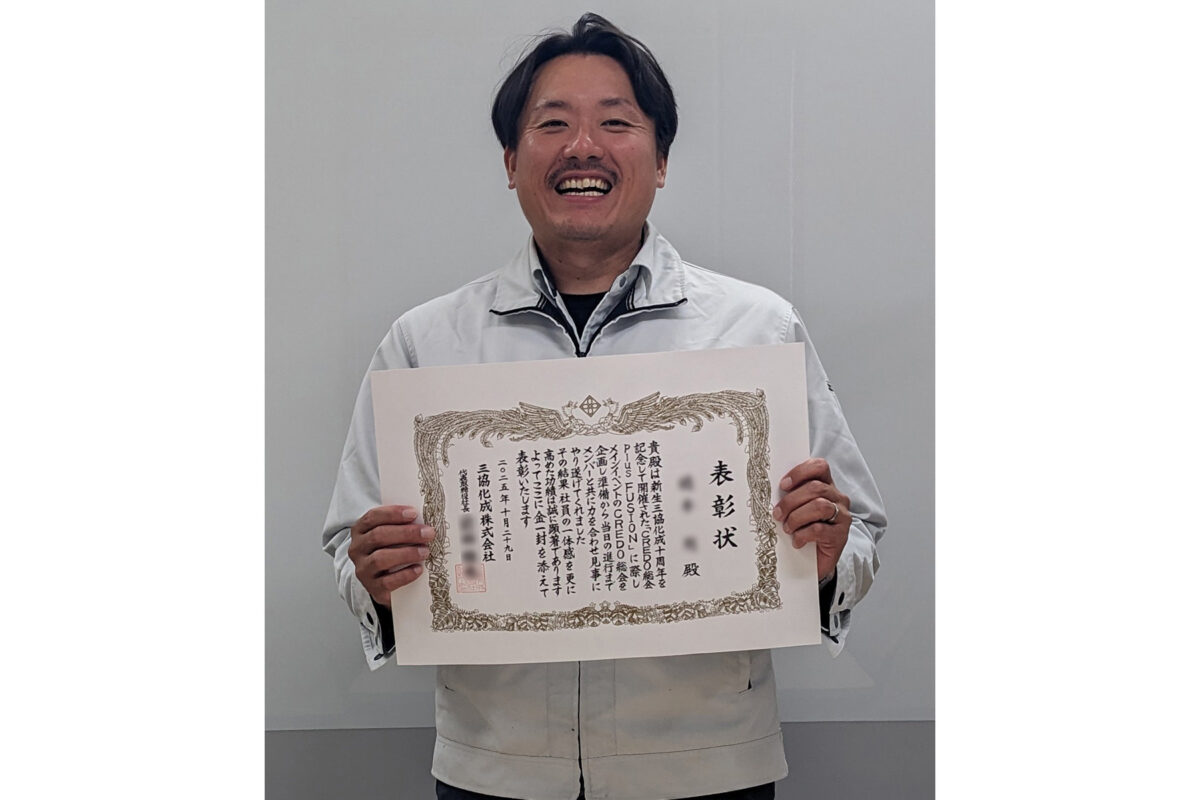 表彰状
殿
貴殿は新生三協化成十周年を
記念して開催された「CREDO総会
Plus FUSION」に際し
メインイベントのCREDO総会を
企画し準備から当日の進行まで
メンバーと共に力を合わせ見事に
やり遂げてくれました
その結果 社員の一体感を更に
高めた功績は誠に顕著であります
よってここに金一封を添えて
表彰いたします
二〇二五年十月二十九日
三協化成株式会社
代表取締役社長